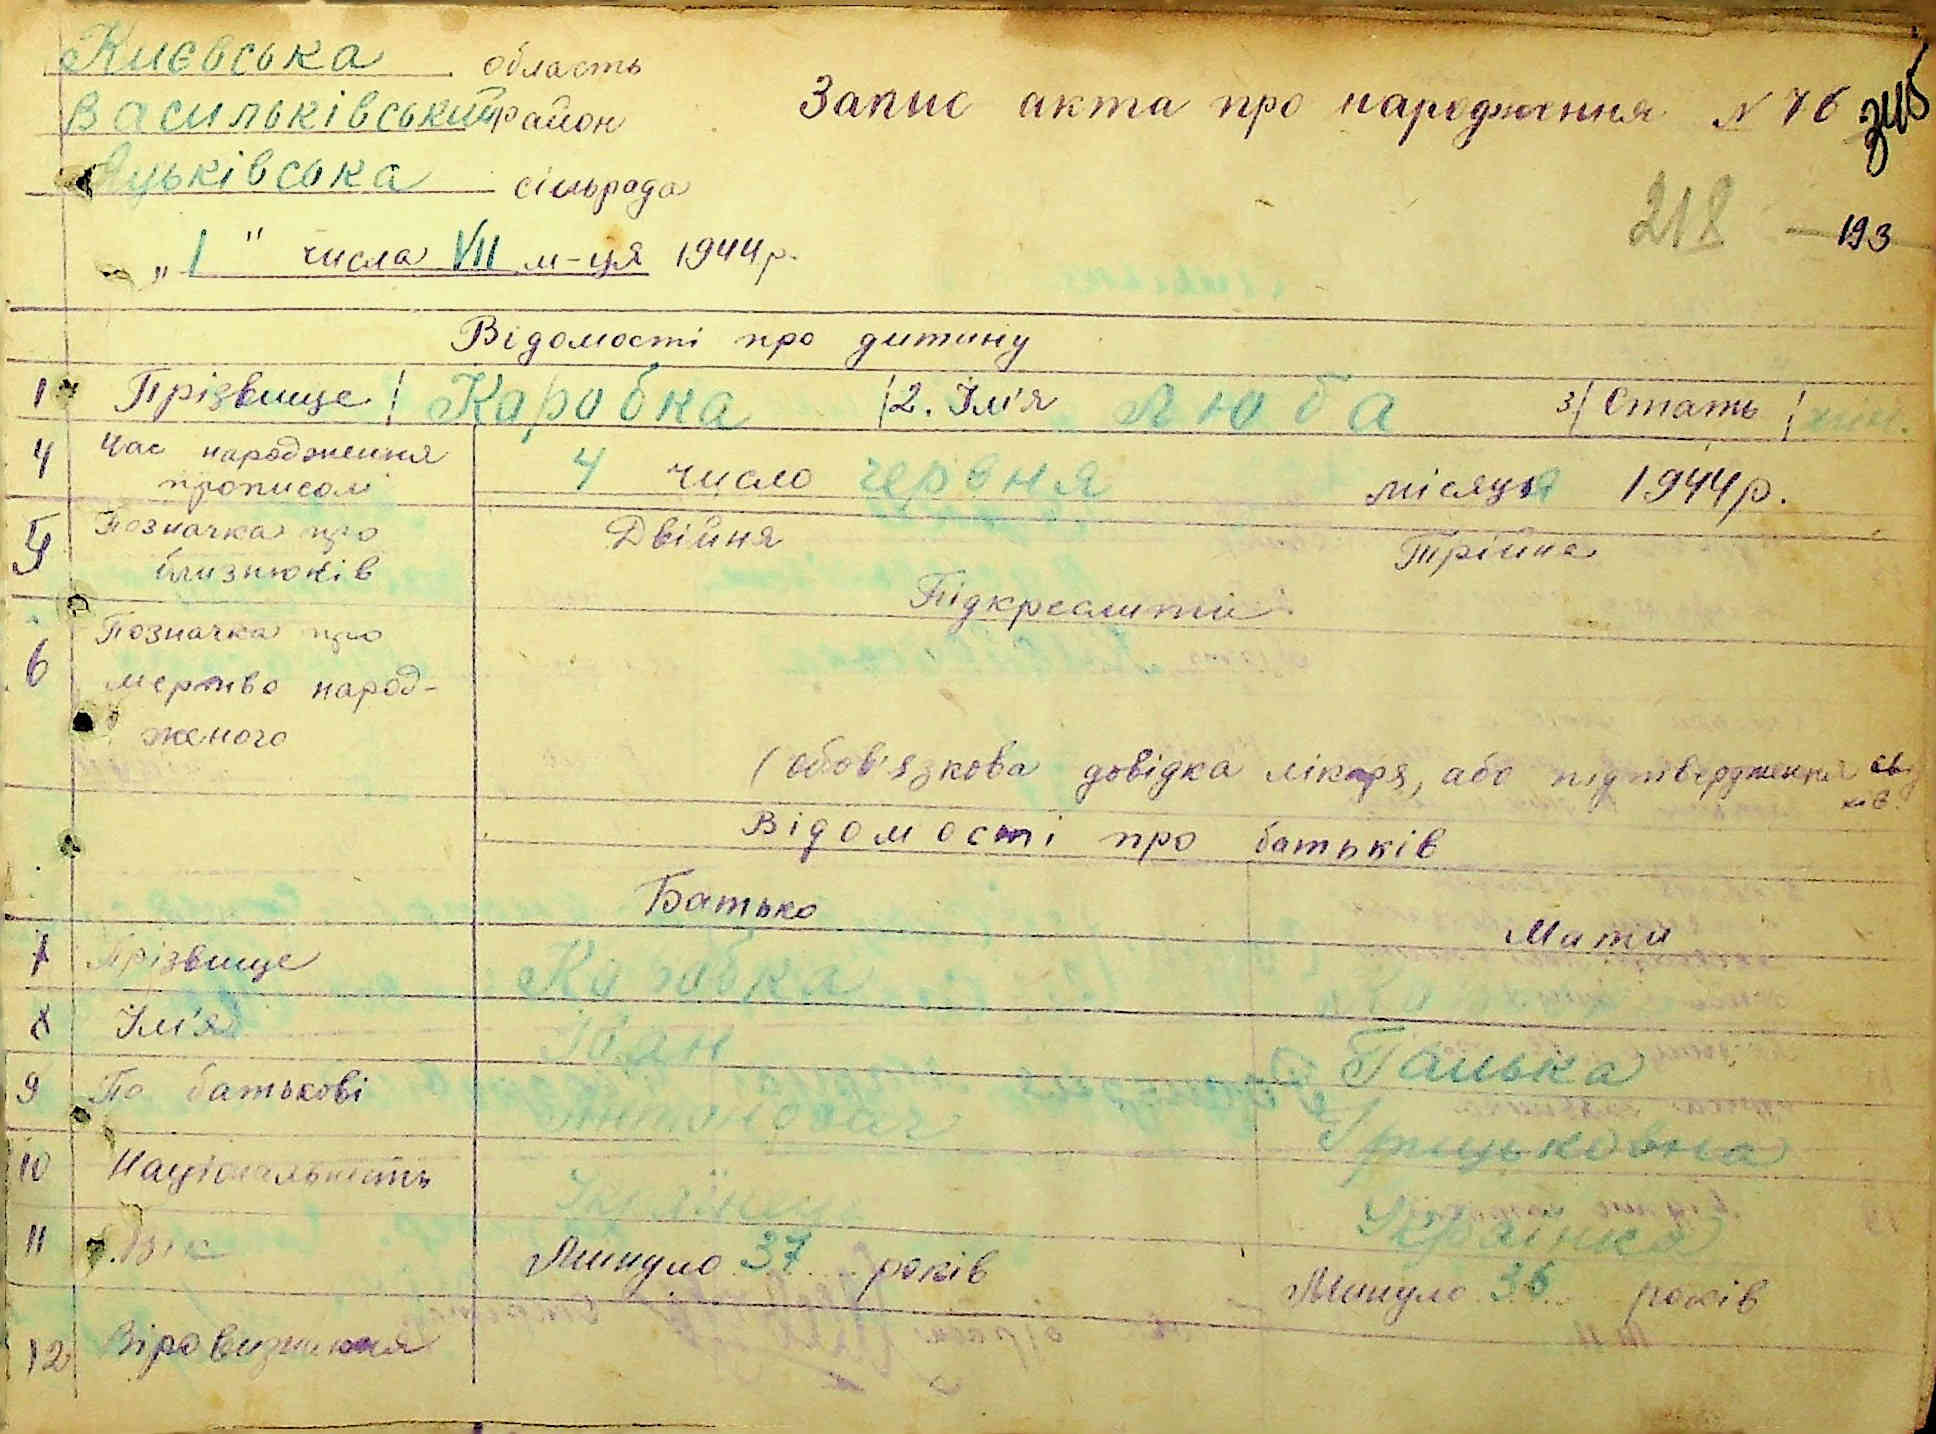 Києвська область
Васильківський район
Яцьківська сільрада
Запис акта про народження N 76
218 — 193
„1" числа VII м-ця 1944 р.
Відомості про дитину
1 Прізвище Каробка 2. Ім'я Люба 3 Стать жін.
4 Час народження прописом 4 число червня місяця 1944 р.
5 Позначка про близнюків Двійня Трійня
Підкреслити
6 Позначка про
мертво народ-
женого
(обов'язкова довідка лікаря, або підтвердження свід
ків.
Відомості про батьків
Батько Мати
7 Прізвище Каробка
8 Ім'я Іван Галька
9 По батькові Антонович Грицьковна
10 Національність Українка
11 Вік Минуло 37 років Минуло 36 років
12 Віровизнання